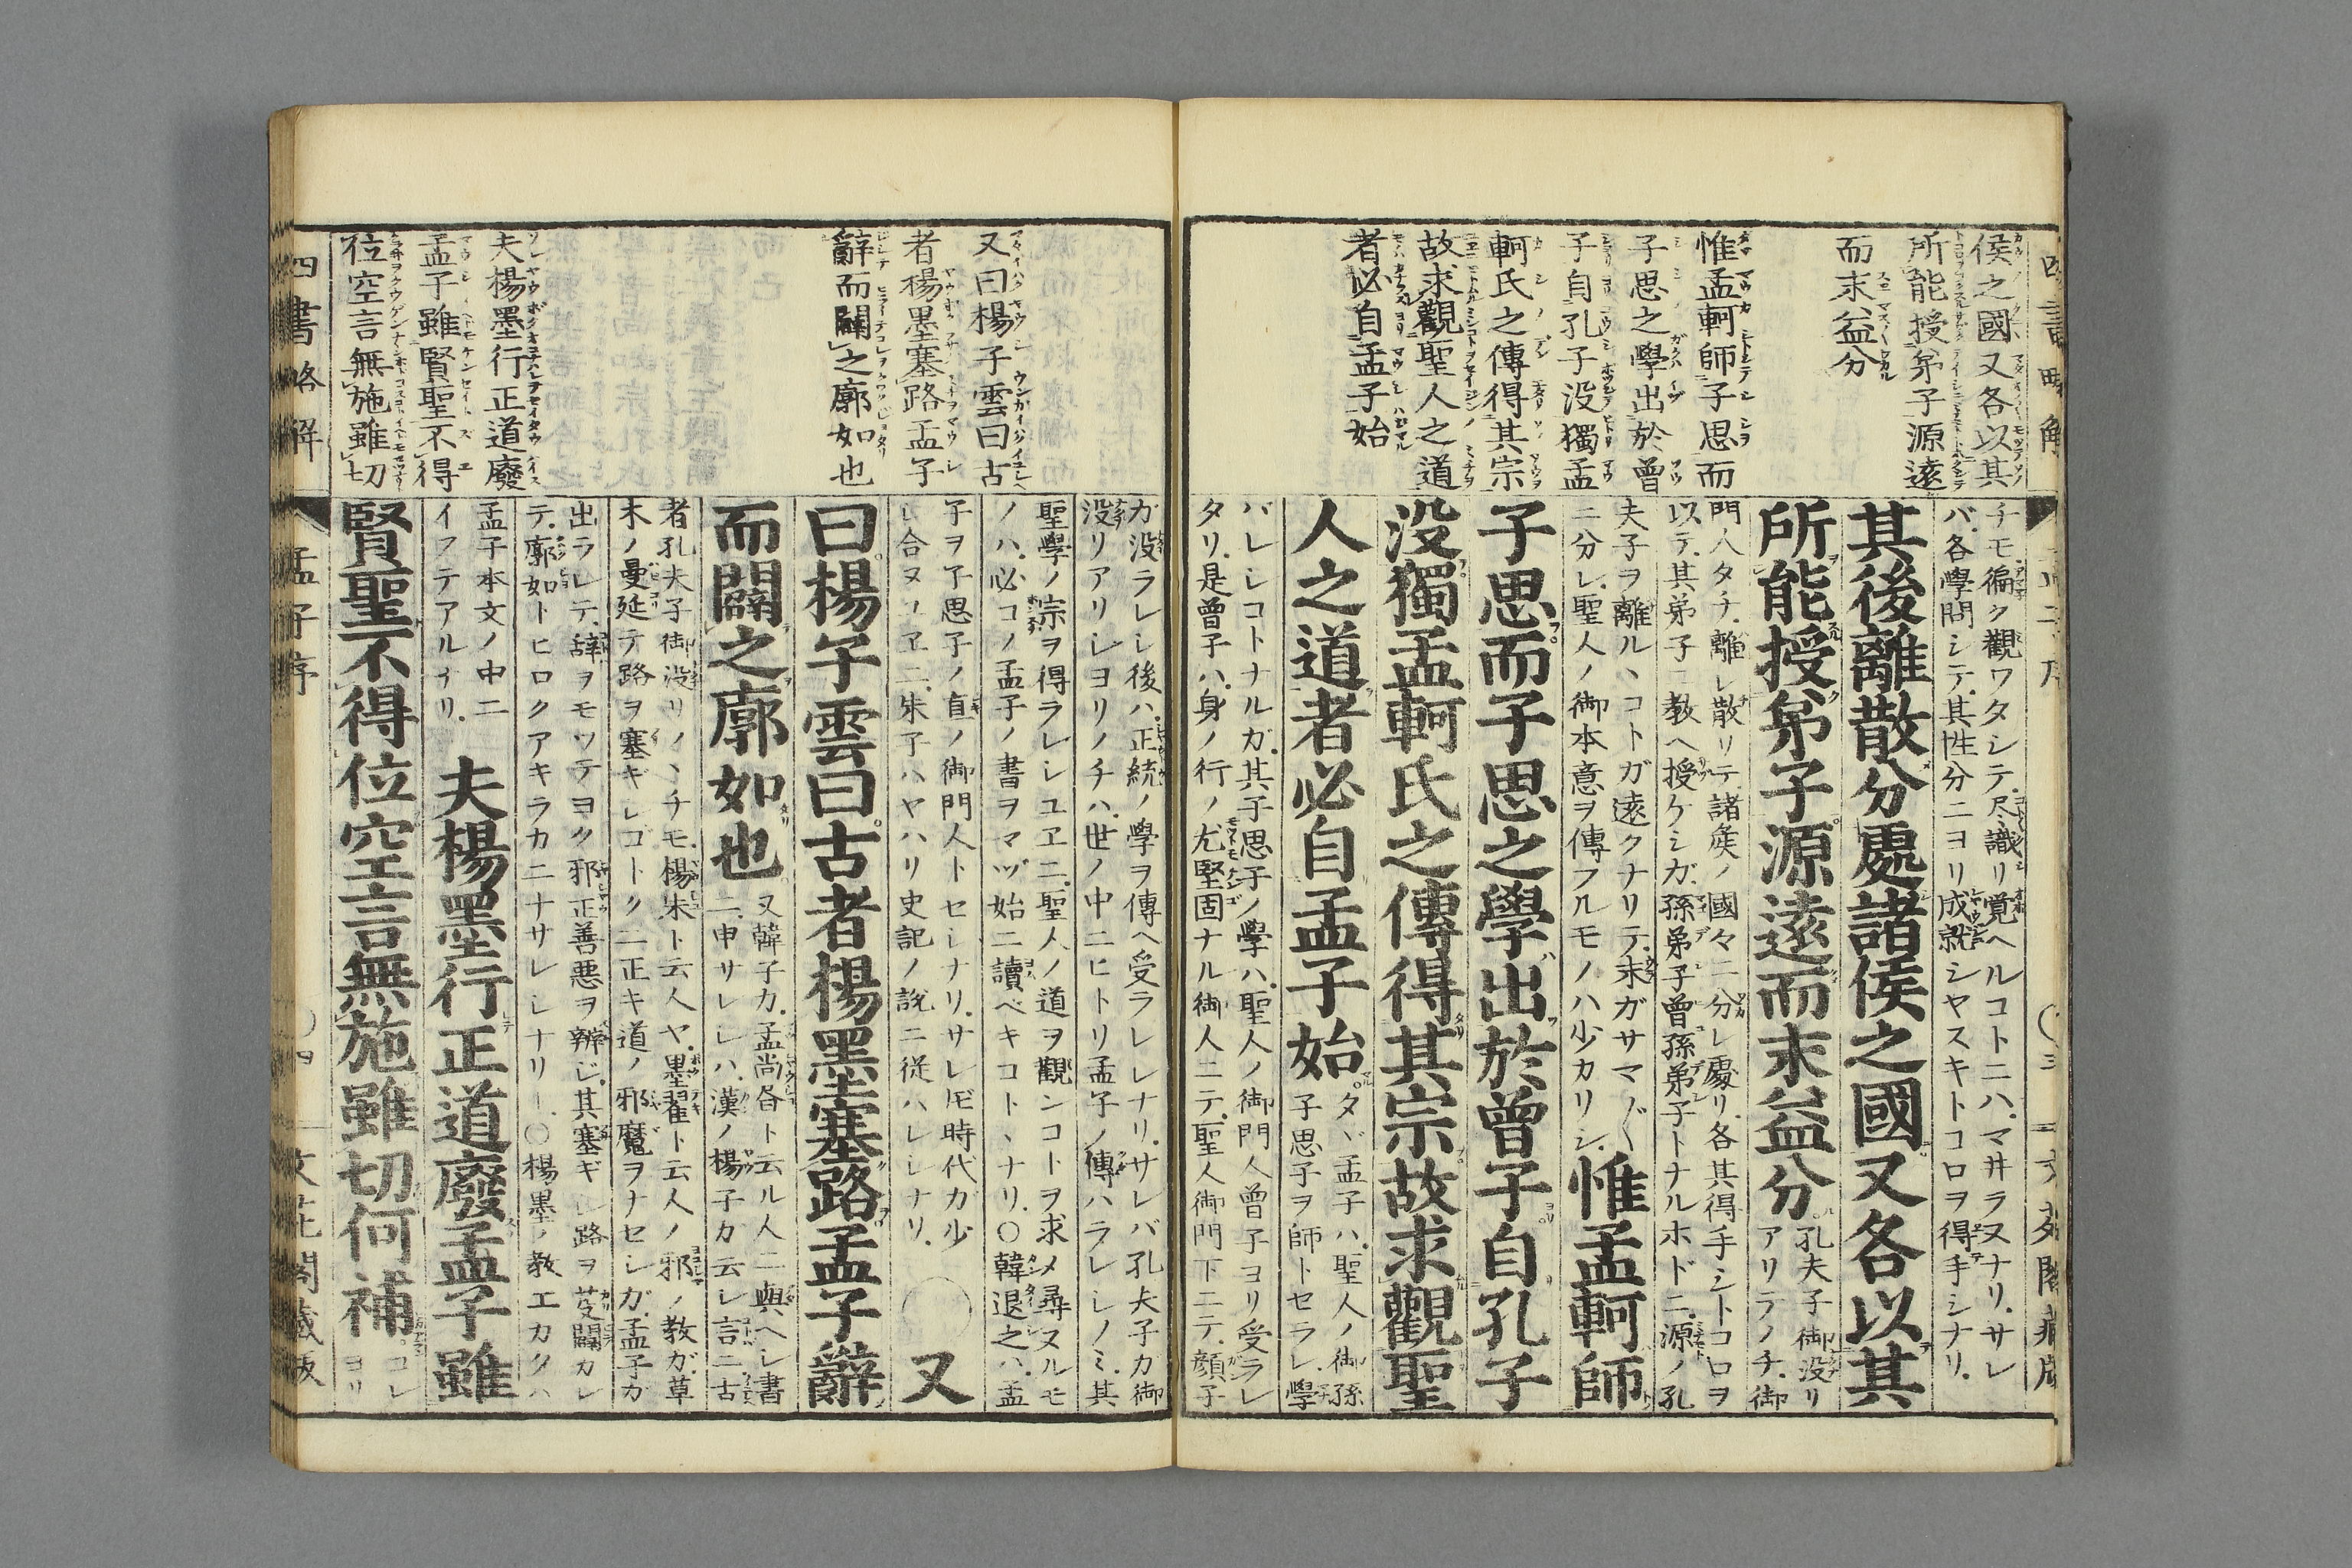 侯之國又各以其
所能授弟子源遠
而末益分
惟孟軻師子思而
子思之學出於曾
子自孔子没獨孟
軻氏之傳得其宗
故求觀聖人之道
者必自孟子始
チモ徧ク觀ワタシテ尽識リ覚ヘルコトニハマ井ラヌナリ.サレ
バ.各學問シテ.其性分ニヨリ成就シヤスキトコロヲ得手シナリ.
其後離散分處諸侯之國又各以其
所能授弟子源遠而末益分
孔夫子御没リ
アリテノチ.御
門人タチ.離レ散リテ.諸矦ノ國々ニ分レ處リ.各其得手シトコロヲ
以テ.其弟子ニ教ヘ授ケシガ.孫弟子曾孫弟子トナルホドニ.源ノ孔
夫子ヲ離ルヽコトガ遠クナリテ.末ガサマ〴〵
ニ分レ.聖人ノ御本意ヲ傳フルモノハ少カリシ.
惟孟軻師
子思而子思之學出於曾子自孔子
没獨孟軻氏之傳得其宗故求觀聖
人之道者必自孟子始
タヾ孟子ハ.聖人ノ御孫
子思子ヲ師トセラレ.學
バレシコトナルガ.其子思子ノ學ハ.聖人ノ御門人曾子ヨリ受ラレ
タリ.是曾子ハ.身ノ行ノ尤堅固ナル御人ニテ.聖人御門下ニテ.顔子
又曰楊子雲曰古
者楊墨塞路孟子
辭而闢之廓如也
夫楊墨行正道廢
孟子雖賢聖不得
位空言無施雖切
ガ没ラレシ後ハ.正統ノ學ヲ傳ヘ受ラレシナリ.サレバ孔夫子ガ御
没リアリシヨリノチハ.世ノ中ニヒトリ孟子ノ傳ハラレシノミ.其
聖學ノ宗ヲ得ラレシユヱニ.聖人ノ道ヲ觀ンコトヲ求メ尋ヌルモ
ノハ.必コノ孟子ノ書ヲマヅ始ニ讀ベキコトヽナリ.○韓退之ハ.孟
子ヲ子思子ノ直ノ御門人トセシナリ.サレ𪜈時代ガ少
シ合ヌユヱニ.朱子ハヤハリ史記ノ説ニ従ハレシナリ.
○又
曰楊子雲曰古者楊墨塞路孟子辭
而闢之廓如也
又韓子ガ.孟尚昏ト云ル人ニ與ヘシ書
ニ.申サレシハ.漢ノ楊子ガ云レ言ニ古
者孔夫子御没リノヽチモ.楊朱ト云人ヤ.墨翟ト云人ノ邪ノ教ガ.草
木ノ曼延テ路ヲ塞ギシゴトクニ正キ道ノ邪魔ヲナセシガ.孟子ガ
出ラレテ.辭ヲモツテヨク邪正善悪ヲ辨ジ.其塞ギシ路ヲ芟闢カレ
テ.廓如トヒロクアキラカニナサレシナリ.○楊墨ノ教エカクハ
孟子本文ノ中ニ
イフテアルナリ.
夫楊墨行正道廢孟子雖
賢聖不得位空言無施雖切何補
コレ
ヨリ
四書略解
孟子序
○四
文花閣藏版